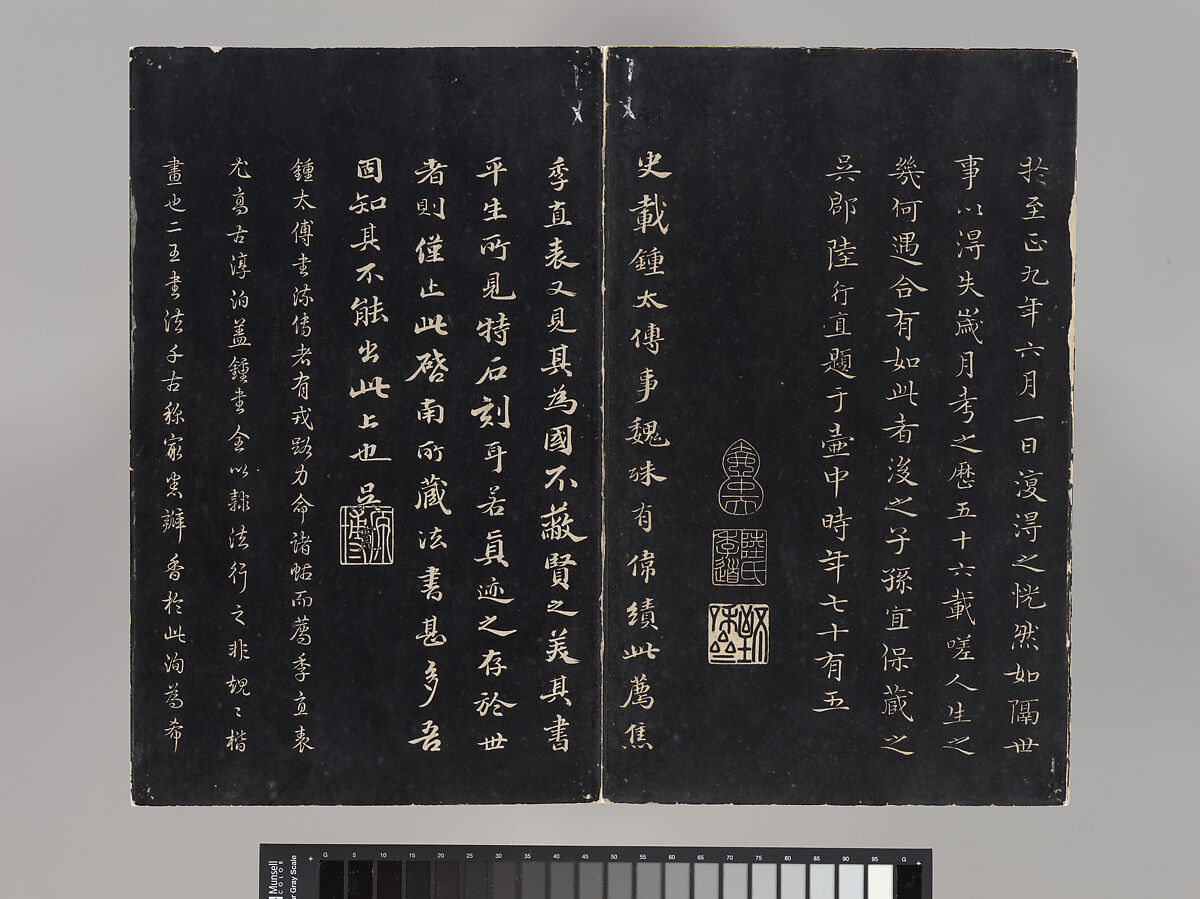 於至正九年六月一日復得之恍然如隔世
事以得失歲月考之歷五十六載嗟人生之
幾何遇合有如此者後之子孫宜保藏之
吳郡陸行直題于壺中時年七十有五
壺中
陸氏季道
史載鍾太傅事魏殊有偉績此薦焦
季直表又見其為國不蔽賢之美其書
平生所見特石刻耳若真迹之存於世
者則僅止此啓南所藏法書甚多吾
固知其不能出此上也吳寬
原博
鍾太傅書流傳者有戎路力命諸帖而薦季直表
尤高古淳泊蓋鍾書全以隸法行之非規〻楷
畫也二王書法千古稱最悉瓣香於此洵為希
Munsell
COLOR
Gray Scale
G 5 10 15 20 25 30 35 40 45 50 55 60 65 70 75 80 85 90 95 G